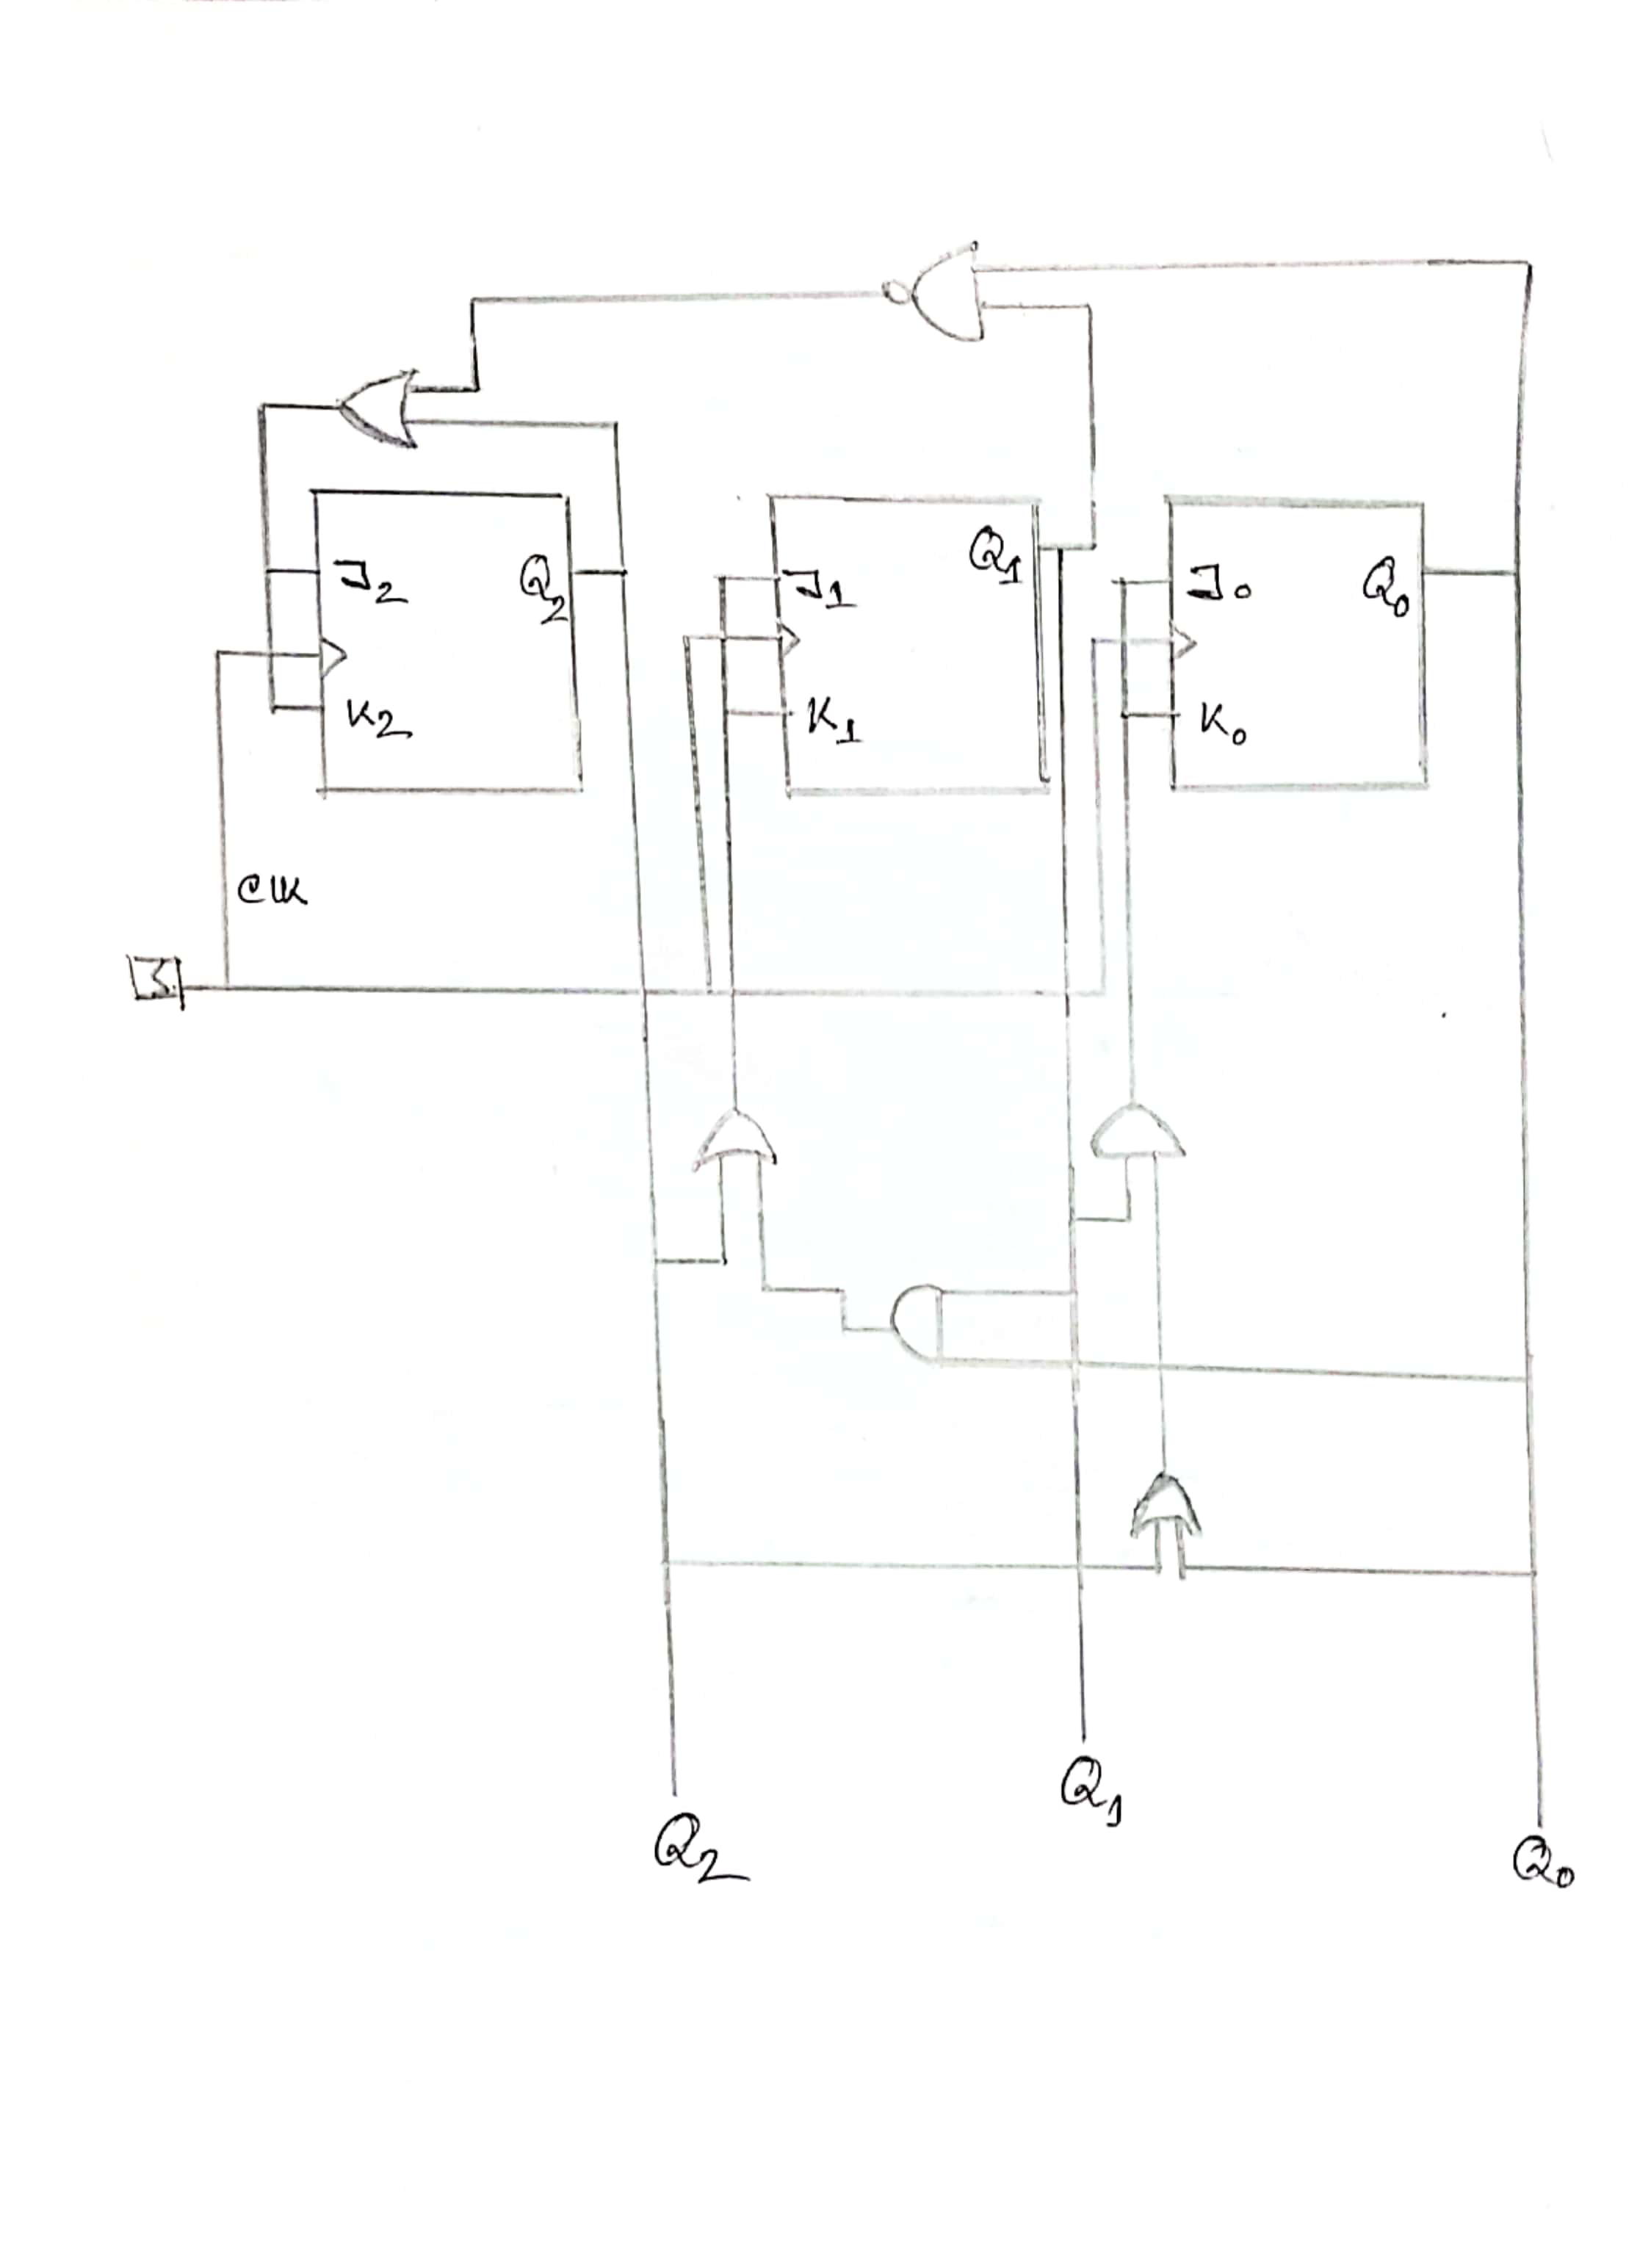 J2 Q2
K2
J1 Q1
K1
J0 Q0
K0
Clk
Q2
Q1
Q0